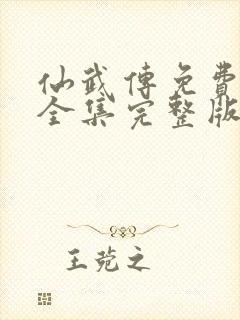 仙武傳免費
全集完整版
王菀之